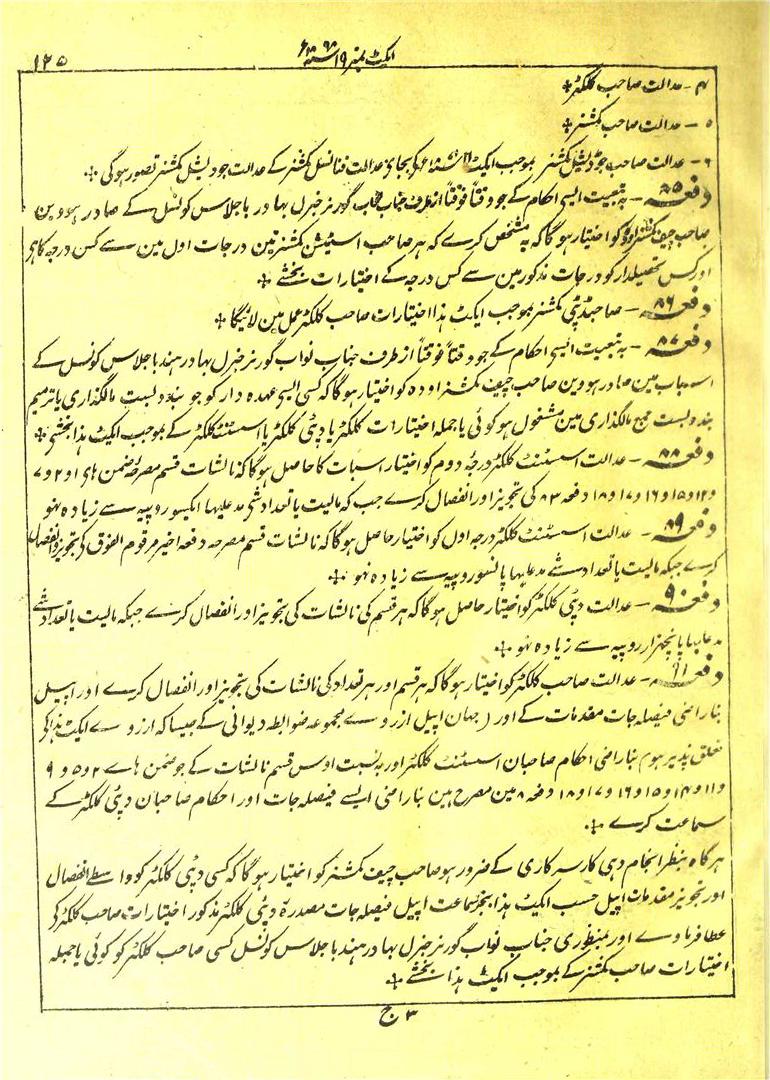 ایکٹ نمبر ۱۹ سنہ ۱۸۶۸ ع
۱۲۵
۴- عدالت صاحب کلکٹر ❖
۵- عدالت صاحب کمشنر ❖
۶- عدالت صاحب جوڈیشل کمشنر بموجب ایکٹ کو بجای عدالت فنانشل کمشنر کے عدالت جوڈیشل کمشنر تصور ہوگی ❖
دفعہ ۸۵ - بہ تبعیت ایسی احکام کے جو وقتاً فوقتاً از طرف جناب نواب گورنر جنرل بہادر باجلاس کونسل کے صادر ہووین
صاحب چیف کمشنر اودہ کو اختیار ہوگا کہ یہ مشخص کرے کہ ہر صاحب اسٹنٹ کمشنر تین درجات اول مین سے کس درجہ کا ہی
اور کس تحصیلدار کو درجات مذکور مین سے کس درجہ کے اختیارات بخشے ❖
دفعہ ۸۶ - صاحب ڈپٹی کمشنر بموجب ایکٹ ہذا اختیارات صاحب کلکٹر عمل مین لائیگا ❖
دفعہ ۸۷ - بہ تبعیت ایسی احکام کے جو وقتاً فوقتاً از طرف جناب نواب گورنر جنرل بہادر ہند باجلاس کونسل کے
اس باب مین صادر ہووین صاحب چیف کمشنر اودہ کو اختیار ہوگا کہ کسی ایسی عہدہ دار کو جو بندوبست مالگذاری یا ترمیم
بندوبست جمع مالگذاری مین مشغول ہو کوئی یا جملہ اختیارات کلکٹر یا ڈپٹی کلکٹر یا اسسٹنٹ کلکٹر کے بموجب ایکٹ ہذا بخشے ❖
دفعہ ۸۸ - عدالت اسسٹنٹ کلکٹر درجہ دوم کو اختیار اسبات کا حاصل ہوگا کہ نالشات قسم مصرحہ ضمن ہای ۱ و ۲ و ۷
و ۱۲ و ۱۵ و ۱۶ و ۱۷ و ۱۸ دفعہ ۸۳ کی تجویز اور انفصال کرے جب کہ مالیت یا تعداد شی مدعلیہا ایکسو روپیہ سے زیادہ نہو
دفعہ ۸۹ - عدالت اسسٹنٹ کلکٹر درجہ اول کو اختیار حاصل ہوگا کہ نالشات قسم مصرحہ دفعہ اخیر مرقوم الفوق کی تجویز و انفصال
کرے جبکہ مالیت یا تعداد شے مدعلیہا پانسو روپیہ سے زیادہ نہو ❖
دفعہ ۹۰ - عدالت ڈپٹی کلکٹر کو اختیار حاصل ہوگا کہ ہر قسم کی نالشات کی تجویز اور انفصال کرے جبکہ مالیت یا تعداد شے
مدعلیہا پانچہزار روپیہ سے زیادہ نہو ❖
دفعہ ۹۱ - عدالت صاحب کلکٹر کو اختیار ہوگا کہ ہر قسم اور ہر تعداد کی نالشات کی تجویز اور انفصال کرے اور اپیل
بناراضی فیصلہ جات مقدمات کے اور (جہان اپیل ازروے مجموعہ ضوابط دیوانی کے جیسا کہ ازروے ایکٹ ہذا کی
تعلق پذیر ہو) بناراضی احکام صاحبان اسسٹنٹ کلکٹر اور بہ نسبت اوس قسم نالشات کے جو ضمن ہاے ۲ و ۵ و ۹
و ۱۱ و ۱۴ و ۱۵ و ۱۶ و ۱۷ و ۱۸ دفعہ ۸ مین مصرح ہین بناراضی ایسے فیصلہ جات اور احکام صاحبان ڈپٹی کلکٹر کے
سماعت کرے ❖
ہرگاہ بنظر انجام دہی کار سرکاری کے ضرور ہو صاحب چیف کمشنر کو اختیار ہوگا کہ کسی ڈپٹی کلکٹر کو واسطے انفصال
اور تجویز مقدمات اپیل حسب ایکٹ ہذا بجز سماعت اپیل فیصلہ جات مصدرہ ڈپٹی کلکٹر مذکور اختیارات صاحب کلکٹر کی
عطا فرماوے اور بمنظوری جناب نواب گورنر جنرل بہادر ہند باجلاس کونسل کسی صاحب کلکٹر کو کوئی یا جملہ
اختیارات صاحب کمشنر کے بموجب ایکٹ ہذا بخشے ❖
۳ ج